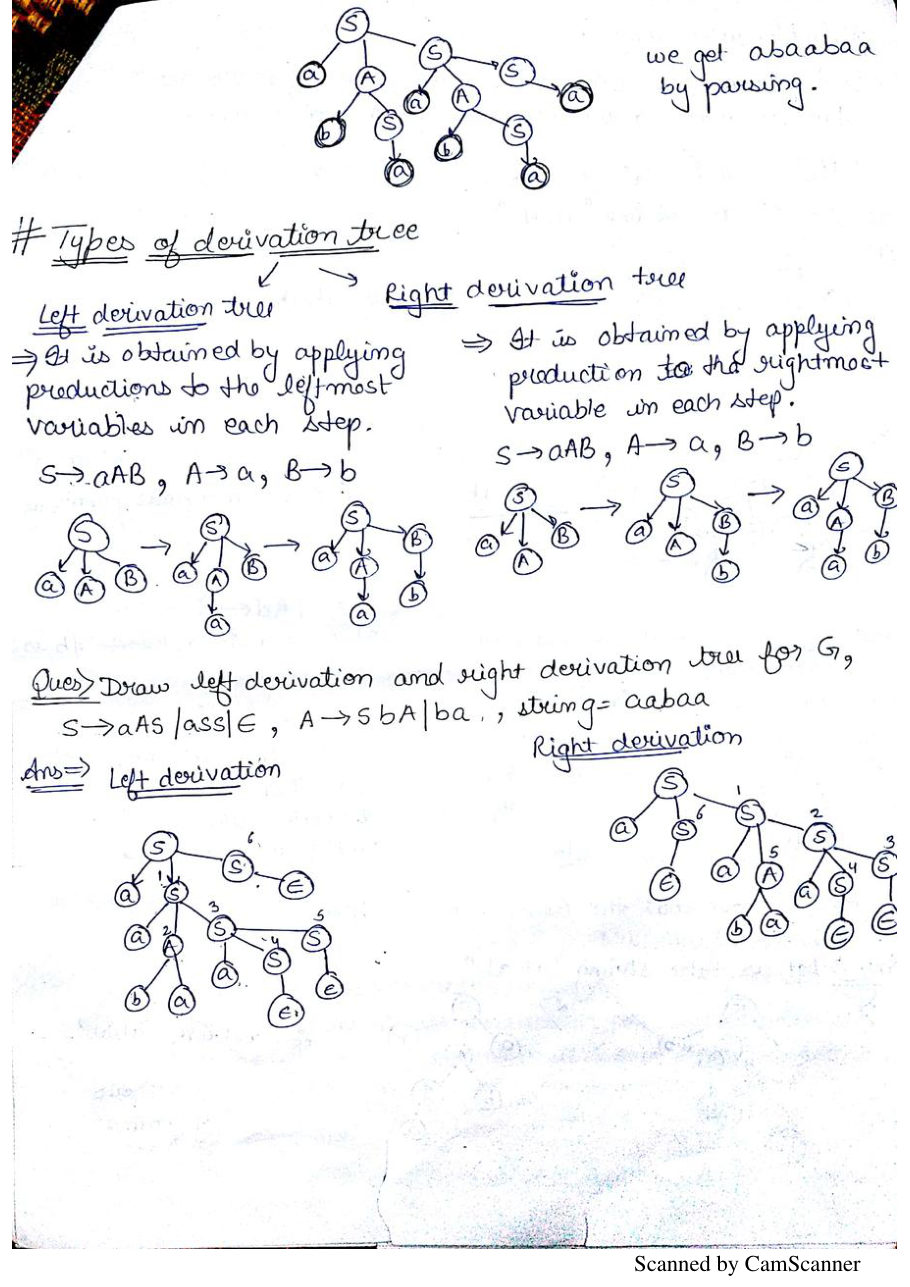 we get abaabaa
by parsing.
S
a A S
b S a A S
a b S a
a
# Types of derivation tree
Left derivation tree
Right derivation tree
⇒ It is obtained by applying
productions to the leftmost
variables in each step.
S→aAB, A→a, B→b
S a A B → S a A B a → S a A B a b
⇒ It is obtained by applying
production to the rightmost
variable in each step.
S→aAB, A→a, B→b
S a A B → S a A B b → S a A B a b
Ques> Draw left derivation and right derivation tree for G,
S→aAS|aSS|∈, A→SbA|ba., string= aabaa
Ans⇒ Left derivation
S
a 1 S 6 S ∈
a 2 A 3 S 5 S
b a a 4 S ∈
∈
Right derivation
S
a S 6 1 S
∈ a 5 A 2 S
b a a S 4 S 3
∈ ∈
Scanned by CamScanner